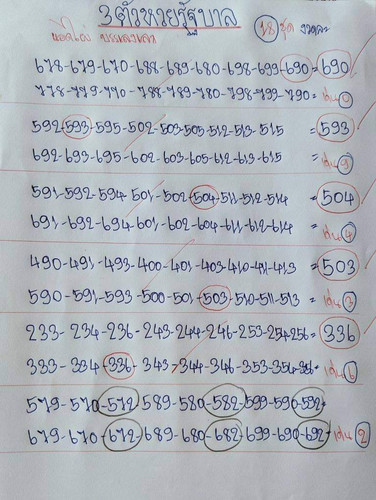 3ตัวหวยรัฐบาล
18 ชุด งวดละ
678-679-670-688-689-680-698-699-690=690
778-779-770-788-789-780-798-799-790=เด่น 0
592-593-595-502-503-505-512-513-515=593
692-693-695-602-603-605-612-613-615=เด่น 9
591-592-594-501-502-504-511-512-514=504
691-692-694-601-602-604-611-612-614=เด่น 4
490-491-493-400-401-403-410-411-413=503
590-591-593-500-501-503-510-511-513=เด่น 3
233-234-236-243-244-246-253-254-256=336
333-334-336-343-344-346-353-354-356=เด่น 6
579-570-572-589-580-582-599-590-592=
679-670-672-689-680-682-699-690-692=เด่น 2